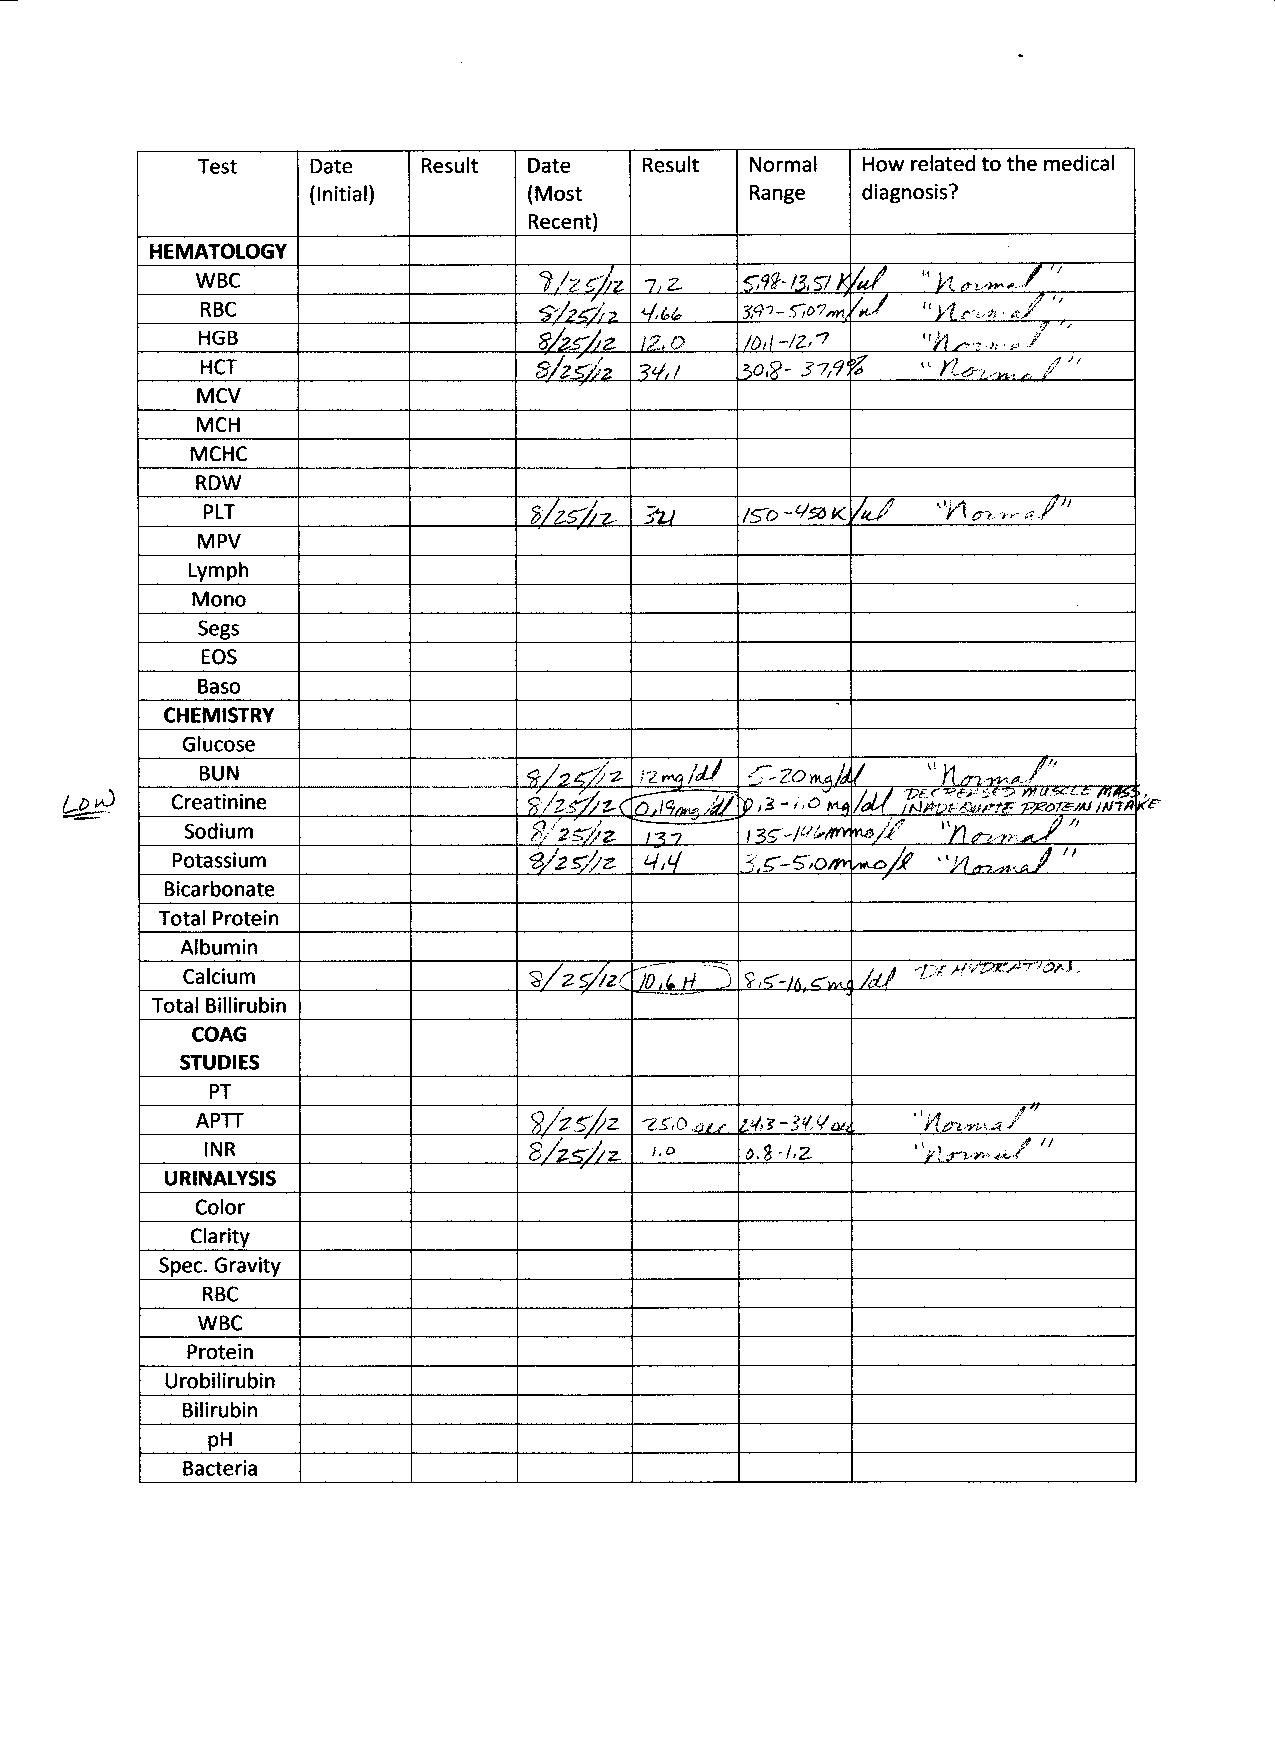 Test Date Result Date Result Normal How related to the medical
(Initial) (Most Range diagnosis?
Recent)
HEMATOLOGY
WBC 8/25/12 7.2 5.98-13.51 K/ul "Normal"
RBC 8/25/12 4.66 3.97-5.07m/ul "Normal"
HGB 8/25/12 12.0 10.1-12.7 "Normal"
HCT 8/25/12 34.1 30.8-37.9% "Normal"
MCV
MCH
MCHC
RDW
PLT 8/25/12 321 150-450K/ul "Normal"
MPV
Lymph
Mono
Segs
EOS
Baso
CHEMISTRY
Glucose
BUN 8/25/12 12mg/dl 5-20mg/dl "Normal"
DECREASED MUSCLE MASS,
LOW Creatinine 8/25/12 0.19mg/dl 0.3-1.0 mg/dl INADEQUATE PROTEIN INTAKE
Sodium 8/25/12 137 135-146mmo/l "Normal"
Potassium 8/25/12 4.4 3.5-5.0mmo/l "Normal"
Bicarbonate
Total Protein
Albumin
Calcium 8/25/12 10.6 H 8.5-10.5mg/dl DEHYDRATION.
Total Billirubin
COAG
STUDIES
PT
APTT 8/25/12 25.0 sec 24.3-34.4 sec "Normal"
INR 8/25/12 1.0 0.8-1.2 "Normal"
URINALYSIS
Color
Clarity
Spec. Gravity
RBC
WBC
Protein
Urobilirubin
Bilirubin
pH
Bacteria